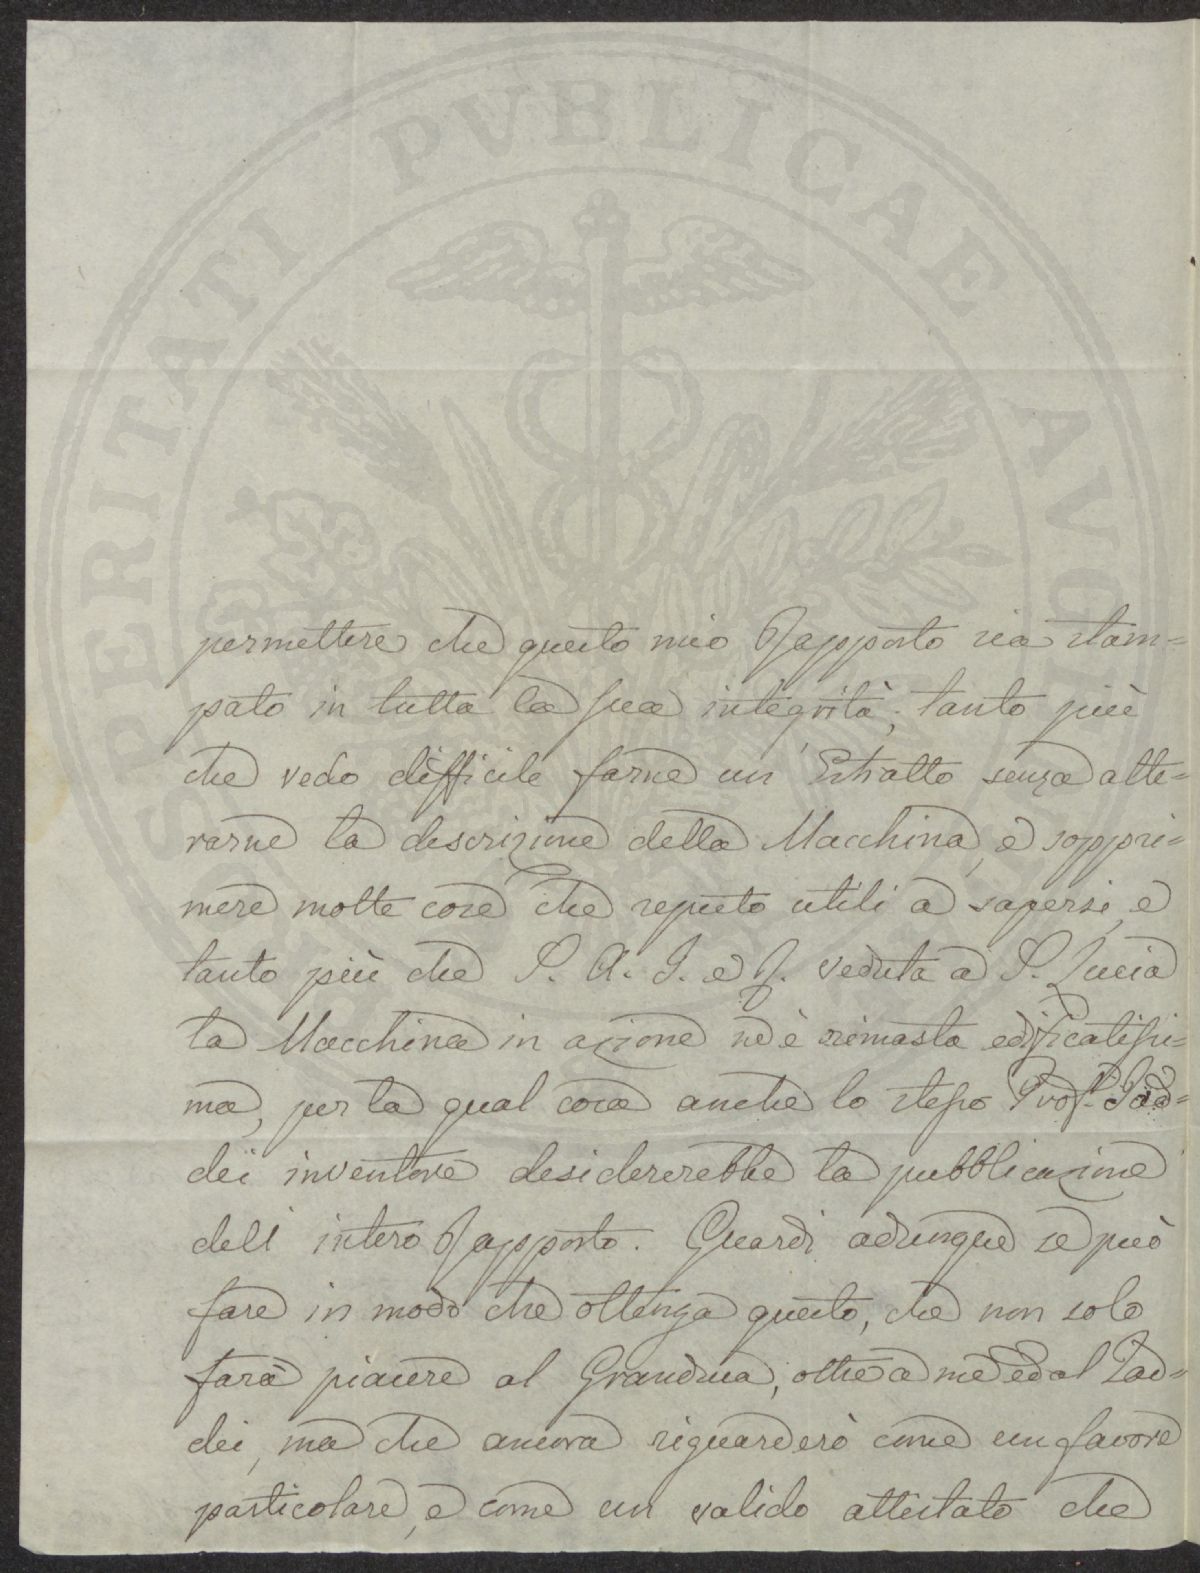 PROSPERITATI PVBLICAE AVGE
permettere che questo mio Rapporto sia stam=
pato in tutta la sua integrità, tanto più
che vedo difficile farne un' Estratto senza alte=
rarne la descrizione della Macchina, e soppri=
mere molte cose che reputo utili a sapersi, e
tanto più che S. A. I. e R. veduta a S. Lucia
la Macchina in azione ne è rimasta edificatissi=
ma, per la qual cosa anche lo stesso Prof. Tad=
dei inventore desidererebbe la pubblicazione
dell' intero Rapporto. Guardi adunque se può
fare in modo che ottenga questo, che non solo
farà piacere al Granduca, oltre a me ed al Tad=
dei, ma che ancora riguarderò come un favore
particolare, e come un valido attestato che